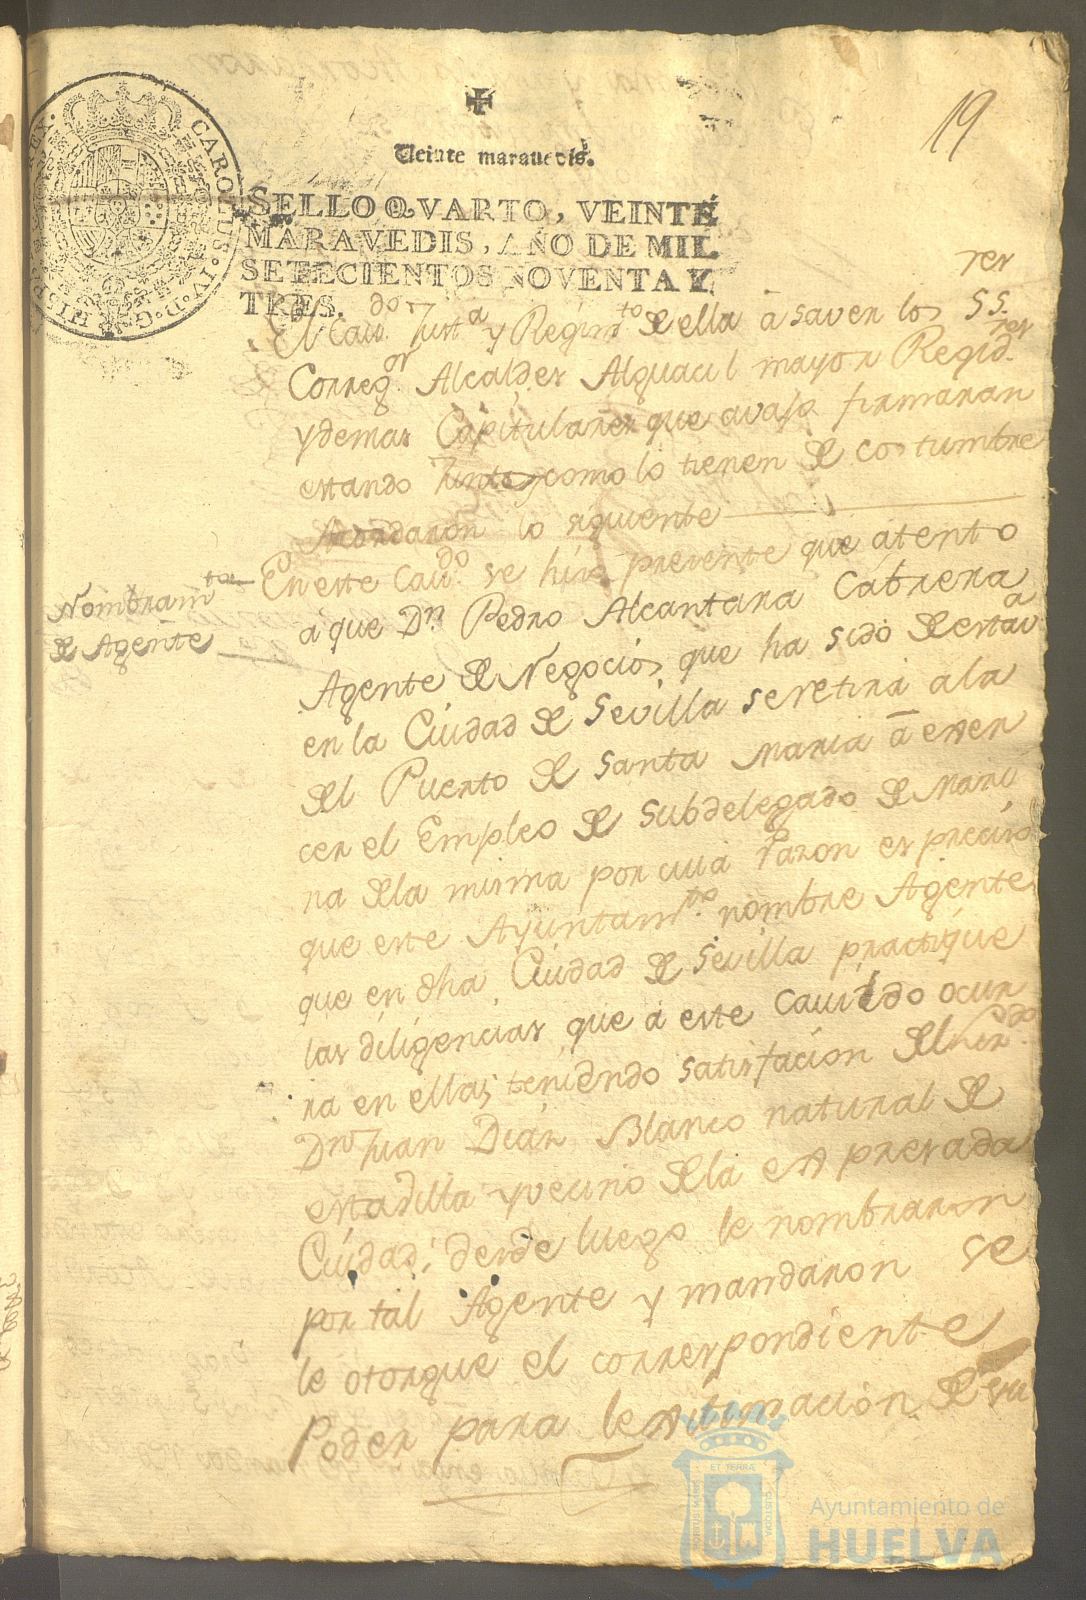 19
Veinte maravedis.
SELLO QVARTO, VEINTE
MARAVEDIS, AÑO DE MIL
SETECIENTOS NOVENTA Y
TRES.
CAROLUS. IV. D. G. HISP. REX.
El Cavdo. Justa. y Regimto de ella â saver los SSres
Corregor Alcaldes Alguacil mayor Regidres
y demas Capitulares que avajo firmaran
estando Juntos como lo tienen de costumbre
Acordaron lo siguente
Nombramto
de Agente
En este Cavdo. se hiso presente que atento
a que Dn Pedro Alcantara Cabrera
Agente de Negocios que ha sido de esta va
en la Ciudad de Sevilla se retira a la
del Puerto de Santa Maria â exer
cer el Empleo de Subdelegado de Mari
na de la misma por cuia razon es preciso
que este Ayuntamto. nombre Agente
que en dha Ciudad de Sevilla practique
las diligencias que a este Cavildo ocur
ra en ellas, teniendo satisfacion del
Dn Juan Diaz Blanco natural de
estadilla y vecino de la expresada
Ciudad, desde luego le nombraron
por tal Agente y mandaron se
le otorgue el correspondiente
Poder para lexitimacion de su
PORTUS MARIS ET TERRÆ CUSTODIA
Ayuntamiento de
HUELVA